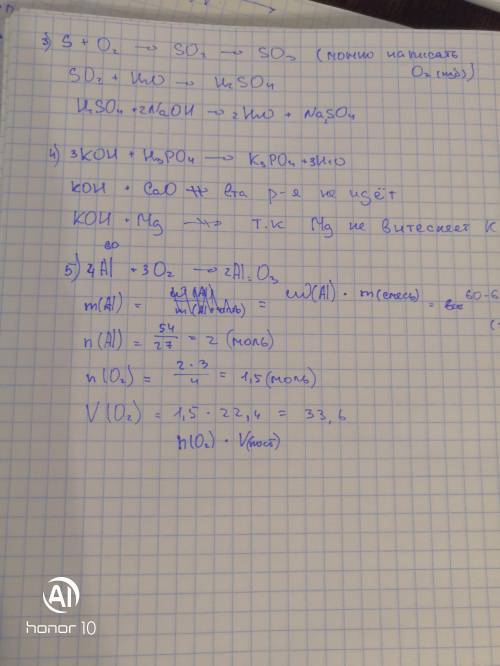 3) S + O₂ → SO₂ → SO₃ (можно написать
O₂ (изб))
SO₂ + H₂O → H₂SO₄
H₂SO₄ + 2NaOH → 2H₂O + Na₂SO₄
4) 3KOH + H₃PO₄ → K₃PO₄ + 3H₂O
KOH + CaO ↛ эта р-я не идёт
KOH + Mg ↛ т.к Mg не витесняет K
60
5) 4Al + 3O₂ → 2Al₂O₃
m(Al) = = ω(Al) · m(смесь) = 60-6
n(Al) = 54/27 = 2 (моль)
n(O₂) = 2·3/4 = 1,5 (моль)
V(O₂) = 1,5 · 22,4 = 33,6
n(O₂) · V(пост)
AI
honor 10